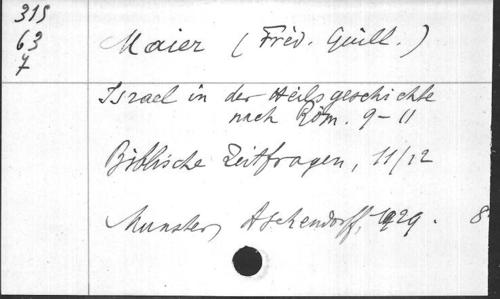 315
63
7
Maier (Frid. Guill.)
Israel in der Heilsgeschichte
nach Röm. 9-11
Biblische Zeitfragen, 11/12
Munster, Aschendorff, 1929. 8°